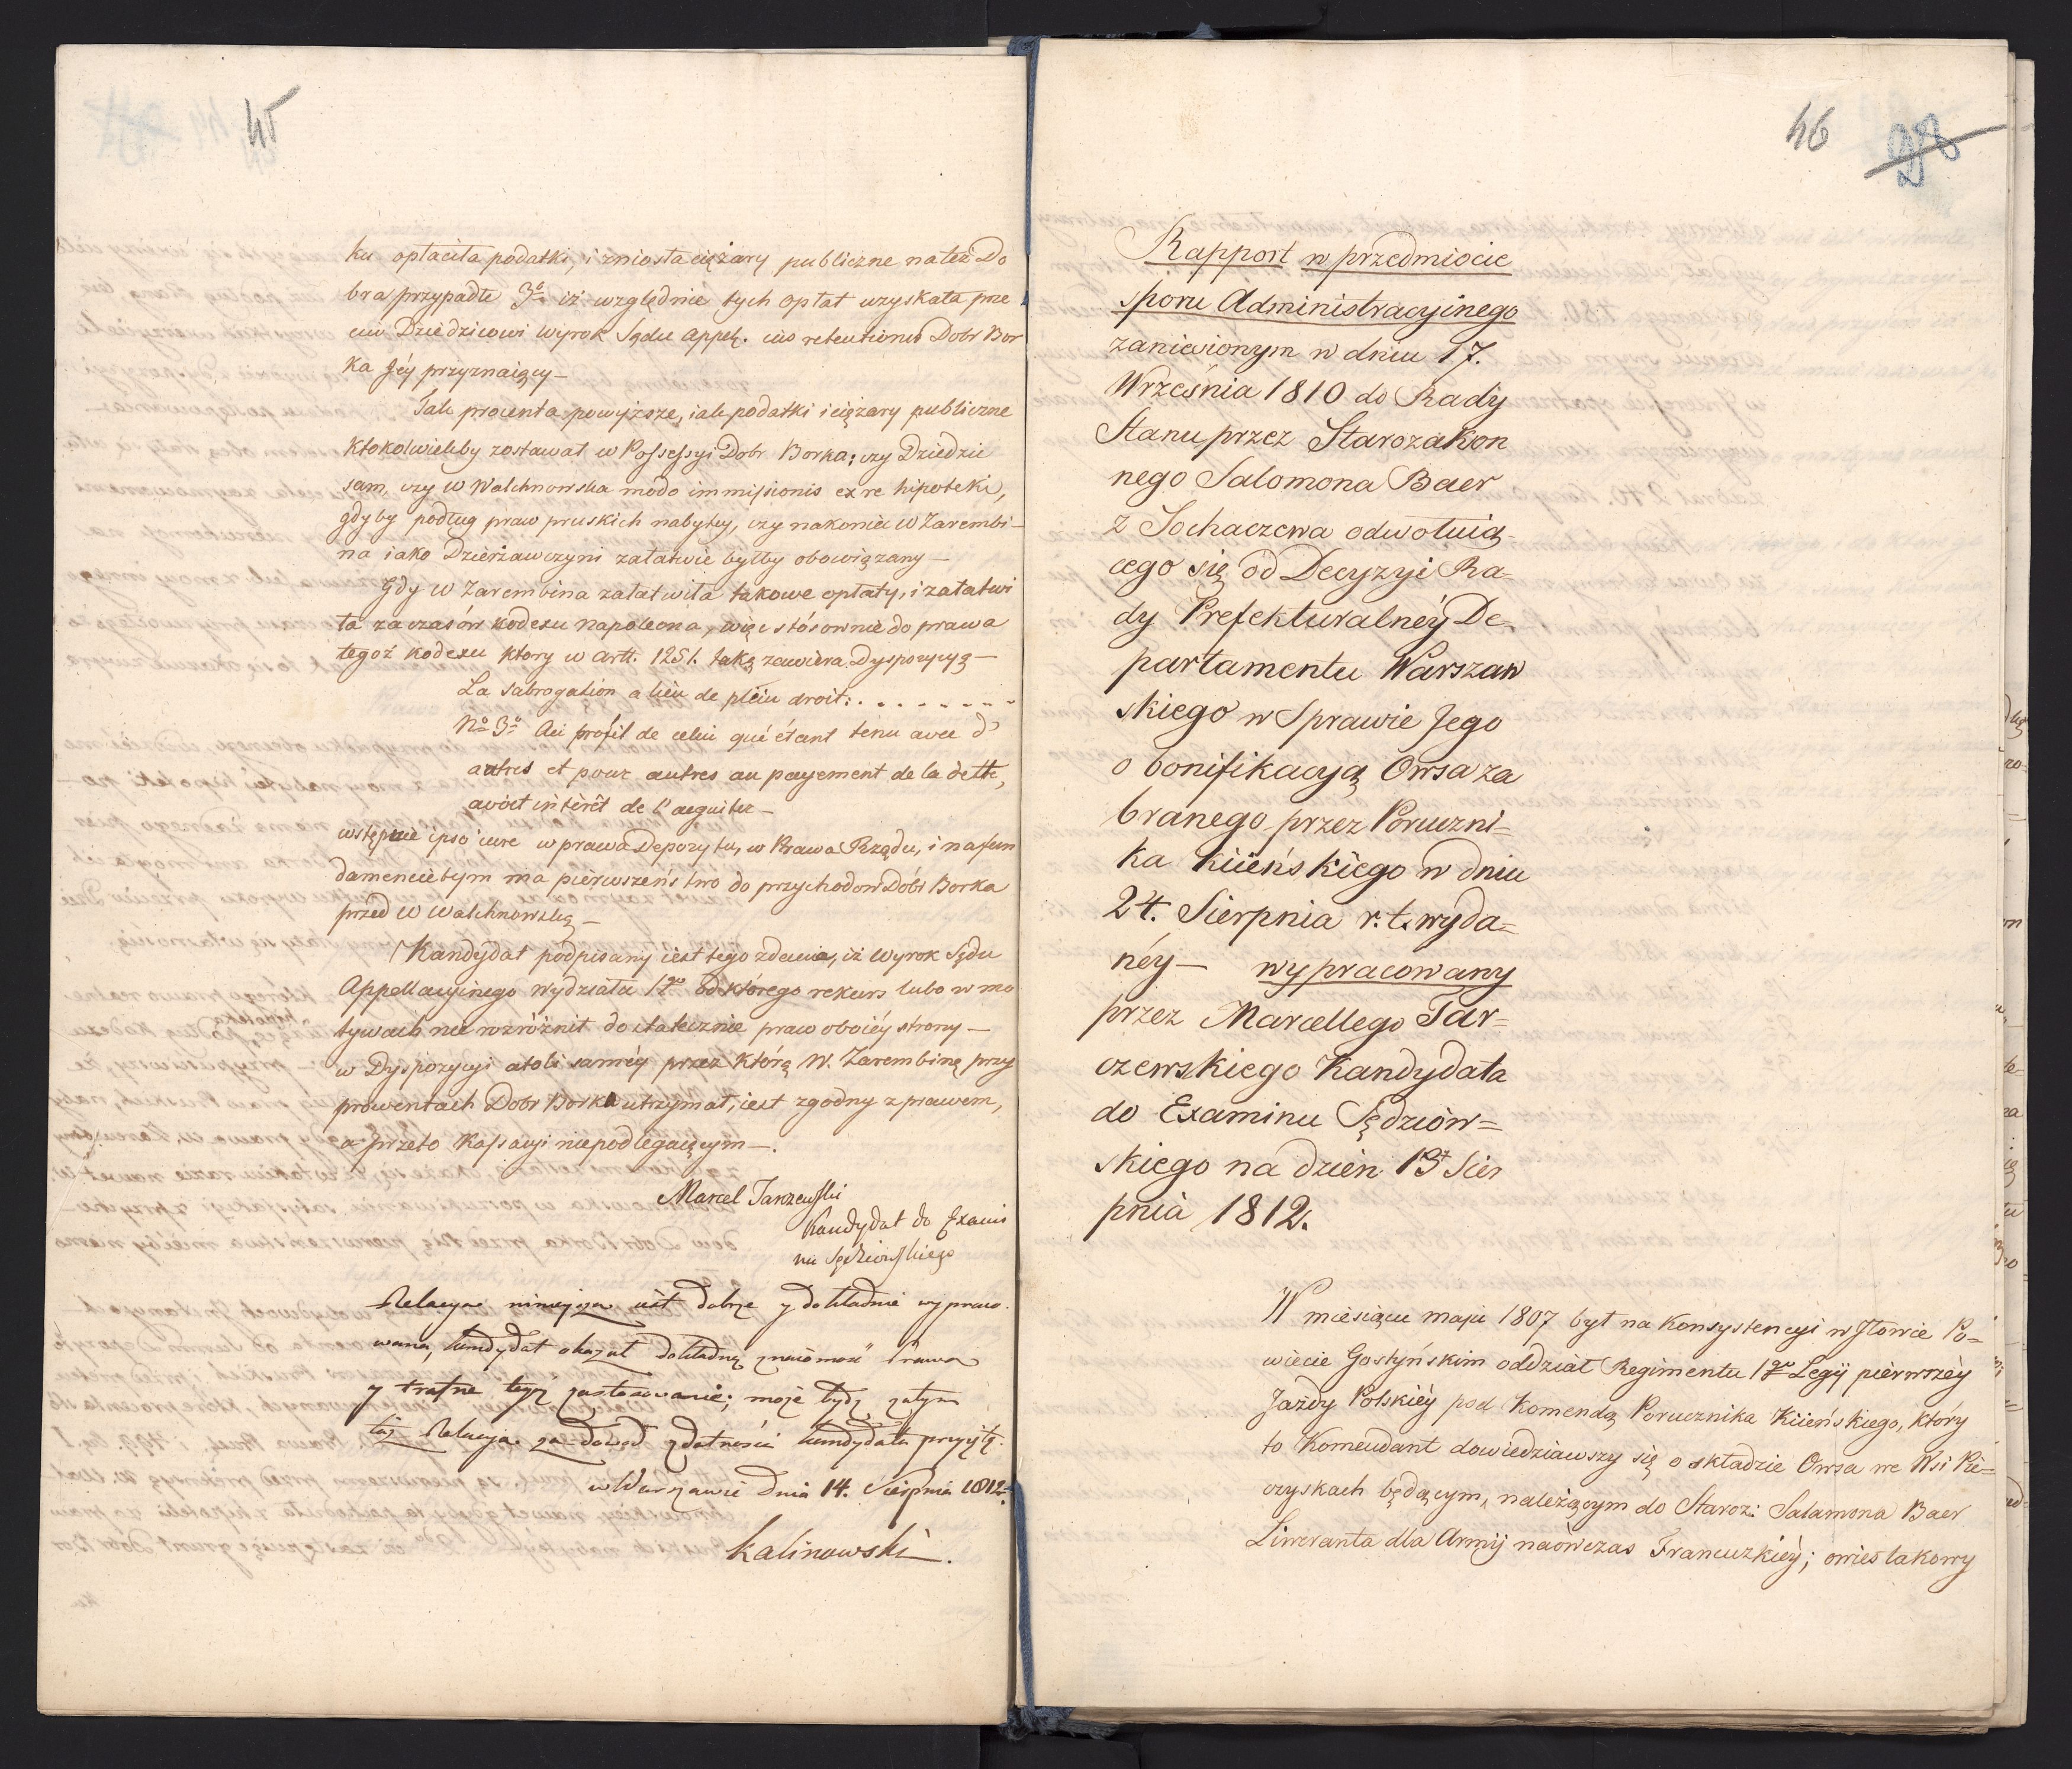 45
ku opłaciła podatki, i zniosła ciężary publiczne na też Do
bra przypadłe 3o iż względnie tych opłat uzyskała prze
ciw Dziedzicowi wyrok Sądu Appell. ius retentionis Dobr Bor
ka Jéy przyznaiący —
Tak procenta powyższe, iak podatki i ciężary publiczne
ktokolwiekby zostawał w Possessyi Dobr Borka; czy Dziedzic
sam, czy W Walchnowska modo immissionis ex re hipoteki,
gdyby podług praw pruskich nabytey, czy nakoniec W Zarembi-
na iako Dzierżawczyni załatwić byłby obowiązany —
Gdy W Zarembina załatwiła takowe opłaty, i załatwi
ła za czasów kodexu Napoleona, więc stósownie do prawa
tegoż kodexu ktory w artt. 1251. taką zawiera Dyspozycyą —
La subrogation a lieu de plein droit: . . . . . . . .
No 3o Au profit de celui qui étant tenu avec d'
autres et pour autres au payement de la dette,
avoit intérêt de l'aquiter —
wstępuie ipso iure w prawa Depozytu, w Prawa Rządu, i na fun
damencie tym ma pierwszeństwo do przychodow Dóbr Borka
przed W Walchnowską —
Kandydat podpisany iest tego zdania, iż wyrok Sądu
Appellacyinego wydziału 1go od którego rekurs lubo w mo
tywach nie rozróżnił dostatecznie praw oboiéy strony —
w Dyspozycyi atoli saméy przez którą W. Zarembinę przy
prowentach Dobr Borka utrzymał, iest zgodny z prawem,
a przeto Kassacyi niepodlegaiącym —.
Marcel Tarczewski
Kandydat do Exami
nu Sędziowskiego
Relacya ninieysza iest dobrze y dokładnie wypraco-
wana, kandydat okazał dokładną znaiomość Prawa
y trafne tegoż zastosowanie; może bydź zatym
taż Relacya za dowod zdatności kandydata przyiętą.
w Warszawie Dnia 14. Sierpnia 1812.
Kalinowski.
46
98
Rapport w przedmiocie
sporu Administracyinego
zaniesionym w dniu 17.
Września 1810 do Rady
Stanu przez Starozakon
nego Salomona Baer
z Sochaczewa odwołuią-
cego się od Decyzyi Ra-
dy Prefekturalnéy De-
partamentu Warszaw
skiego w Sprawie Jego
o bonifikacyą Owsa za
branego przez Poruczni=
ka Kiieńskiego w dniu
24. Sierpnia r. t. wyda=
néy — wypracowany
przez Marcellego Tar=
czewskiego Kandydata
do Examinu Sędziow=
skiego na dzień 13 Sier
pnia 1812.
W miesiącu maju 1807 był na Konsystencyi w Iłowie Po=
wiecie Gostyńskim oddział Regimentu 1go Legii pierwszéy
Jazdy Polskiéy pod Komendą Porucznika Kiieńskiego, który
to Komendant dowiedziawszy się o składzie Owsa we Wsi Pie=
czyskach będącym, należącym do Staroz: Salamona Baer
Liweranta dla Armij naówczas Francuzkiéy; owies takowy